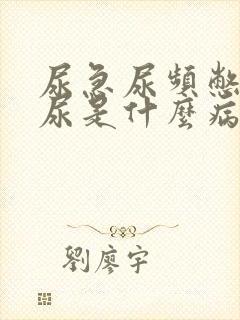 尿急尿頻憋
尿是什麼病
劉廖宇